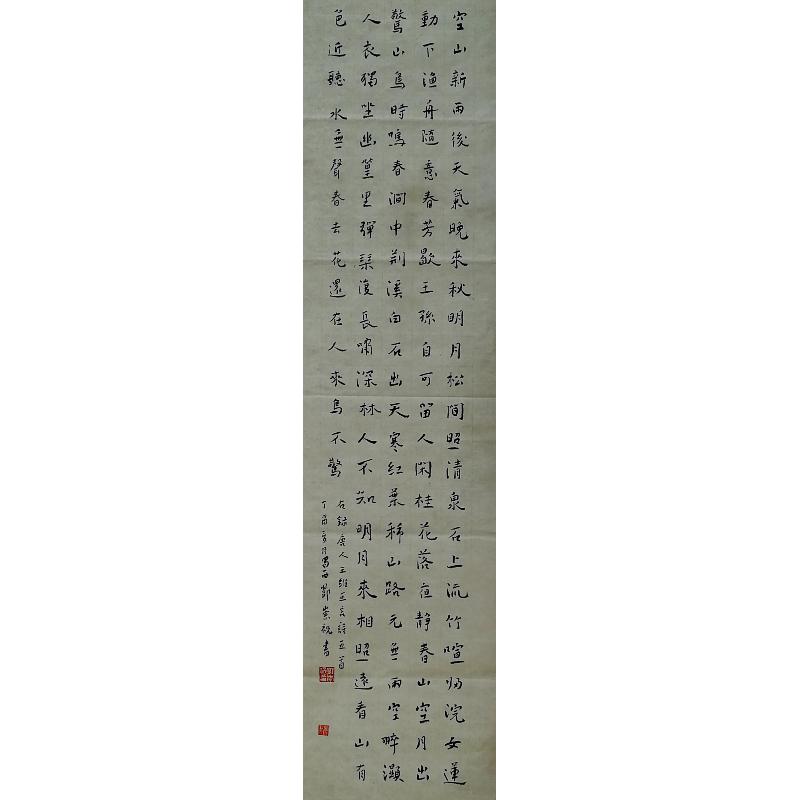 空山新雨後天氣晚來秋明月松間照清泉石上流竹喧歸浣女蓮
動下漁舟隨意春芳歇王孫自可留人閑桂花落夜靜春山空月出
驚山鳥時鳴春澗中荊溪白石出天寒紅葉稀山路元無雨空翠濕
人衣獨坐幽篁里彈琴復長嘯深林人不知明月來相照遠看山有
色近聽水無聲春去花還在人來鳥不驚
右錄唐人王維五言詩五首
丁酉月西鄭崇書